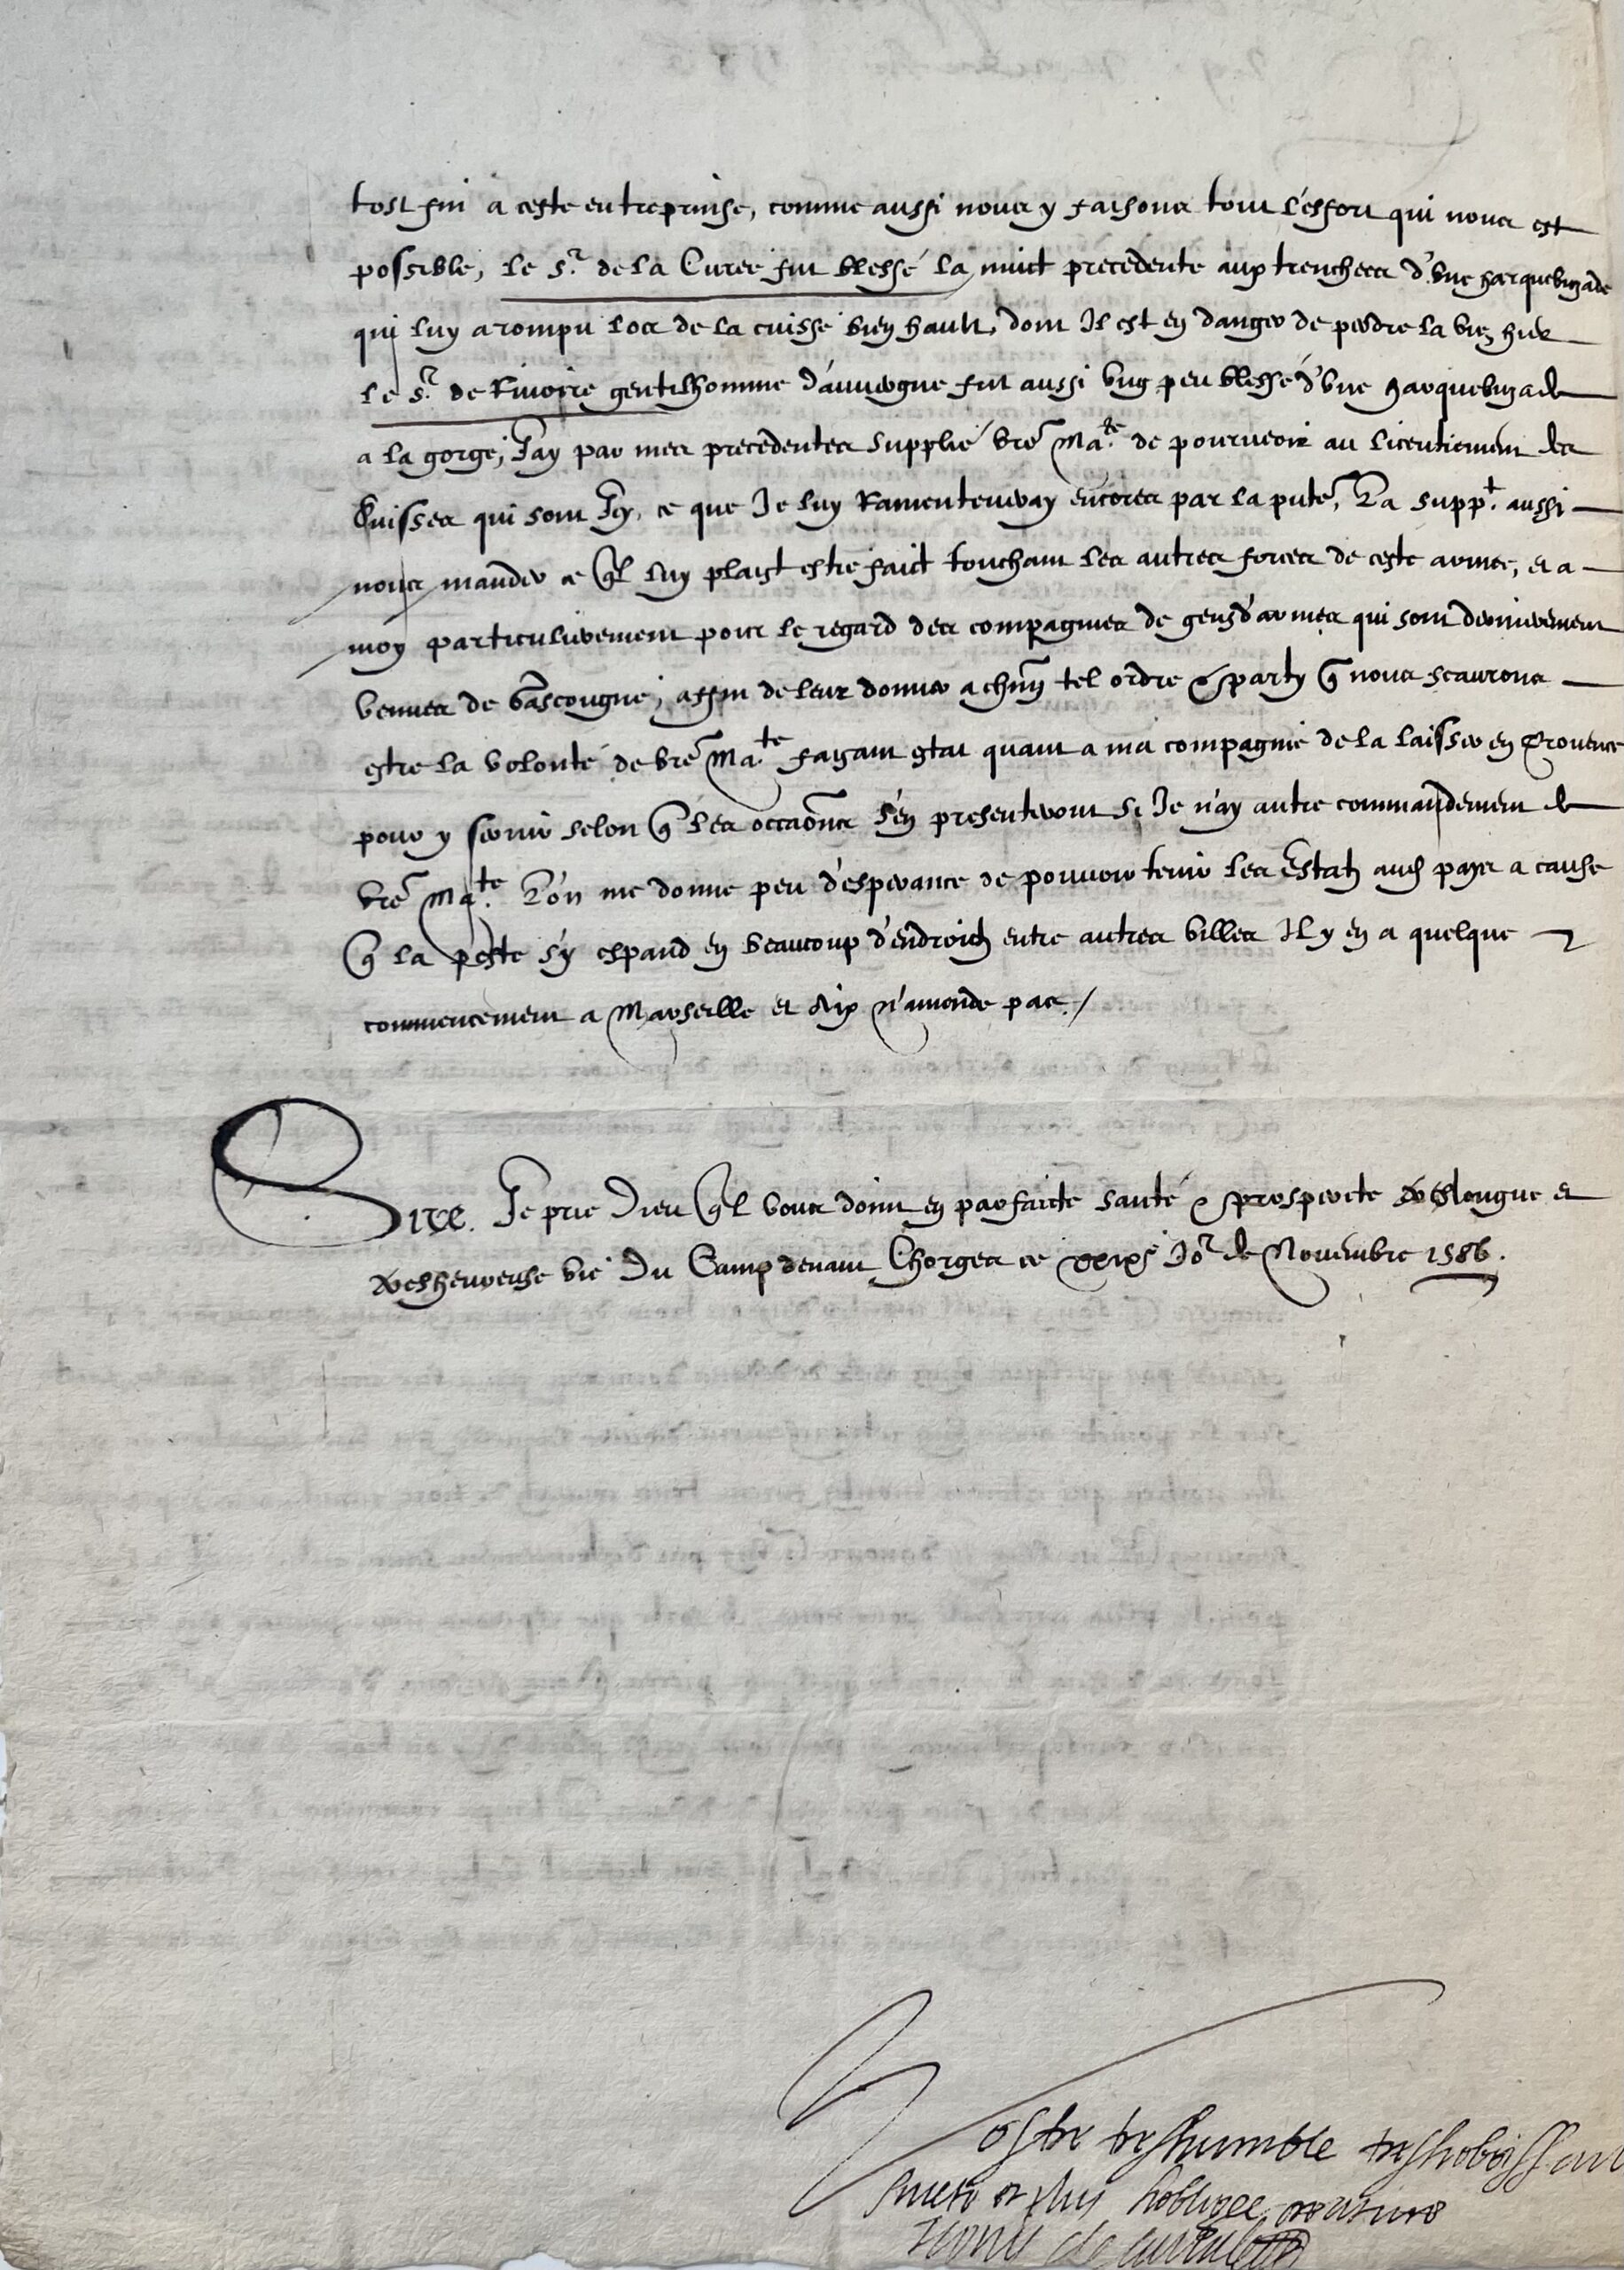 tost fin a ceste entreprinse, comme aussi nous y faisons tout l'effort qui nous est
possible, le Sr. de la Curee fut blessé la nuict precedente aux trenchees d'une harquebuzade
qui luy a rompu l'os de la cuisse bien hault, dont il est en danger de perdre la vie, hier
le Sr. de Rivoire gentilhomme d'auvergne fut aussi ung peu blessé d'une harquebuzade
a la gorge, J'ay par mes precedentes supplié vre Ma.te de pourveoir au licentiement des
Suisses qui sont Icy, ce que Je luy ramenteuray encores par la pnte, La suppt. aussi
nous mander ce ql luy plaist estre faict touchant les autres forces de ceste armee, et a
moy particulierement pour le regard des compagnies de gensd'armes qui sont dernierement
venues de Gascongne, affin de leur donner a chun tel ordre & party q nous scaurons
estre la volonté de vre Ma.te faisant estat quant a ma compagnie de la laisser en Provence
pour y servir selon q les occaons s'en presenteront si Je n'ay autre commandement de
vre Ma.te L'on me donne peu d'esperance de pouvoir tenir les Estatz aud pays a cause
q la peste s'y espand en beaucoup d'endroictz entre autres villes Il y en a quelque
commencement a Marseille et Aix n'amende pas./
Sire. Je prie Dieu ql vous doint en parfaicte santé & prosperite treslongue et
tresheureuse vie Du Camp devant Chorges ce xxixe Jor de Novembre 1586.
Vostre treshumble treshobeissant
suiet et plus hobligee creature